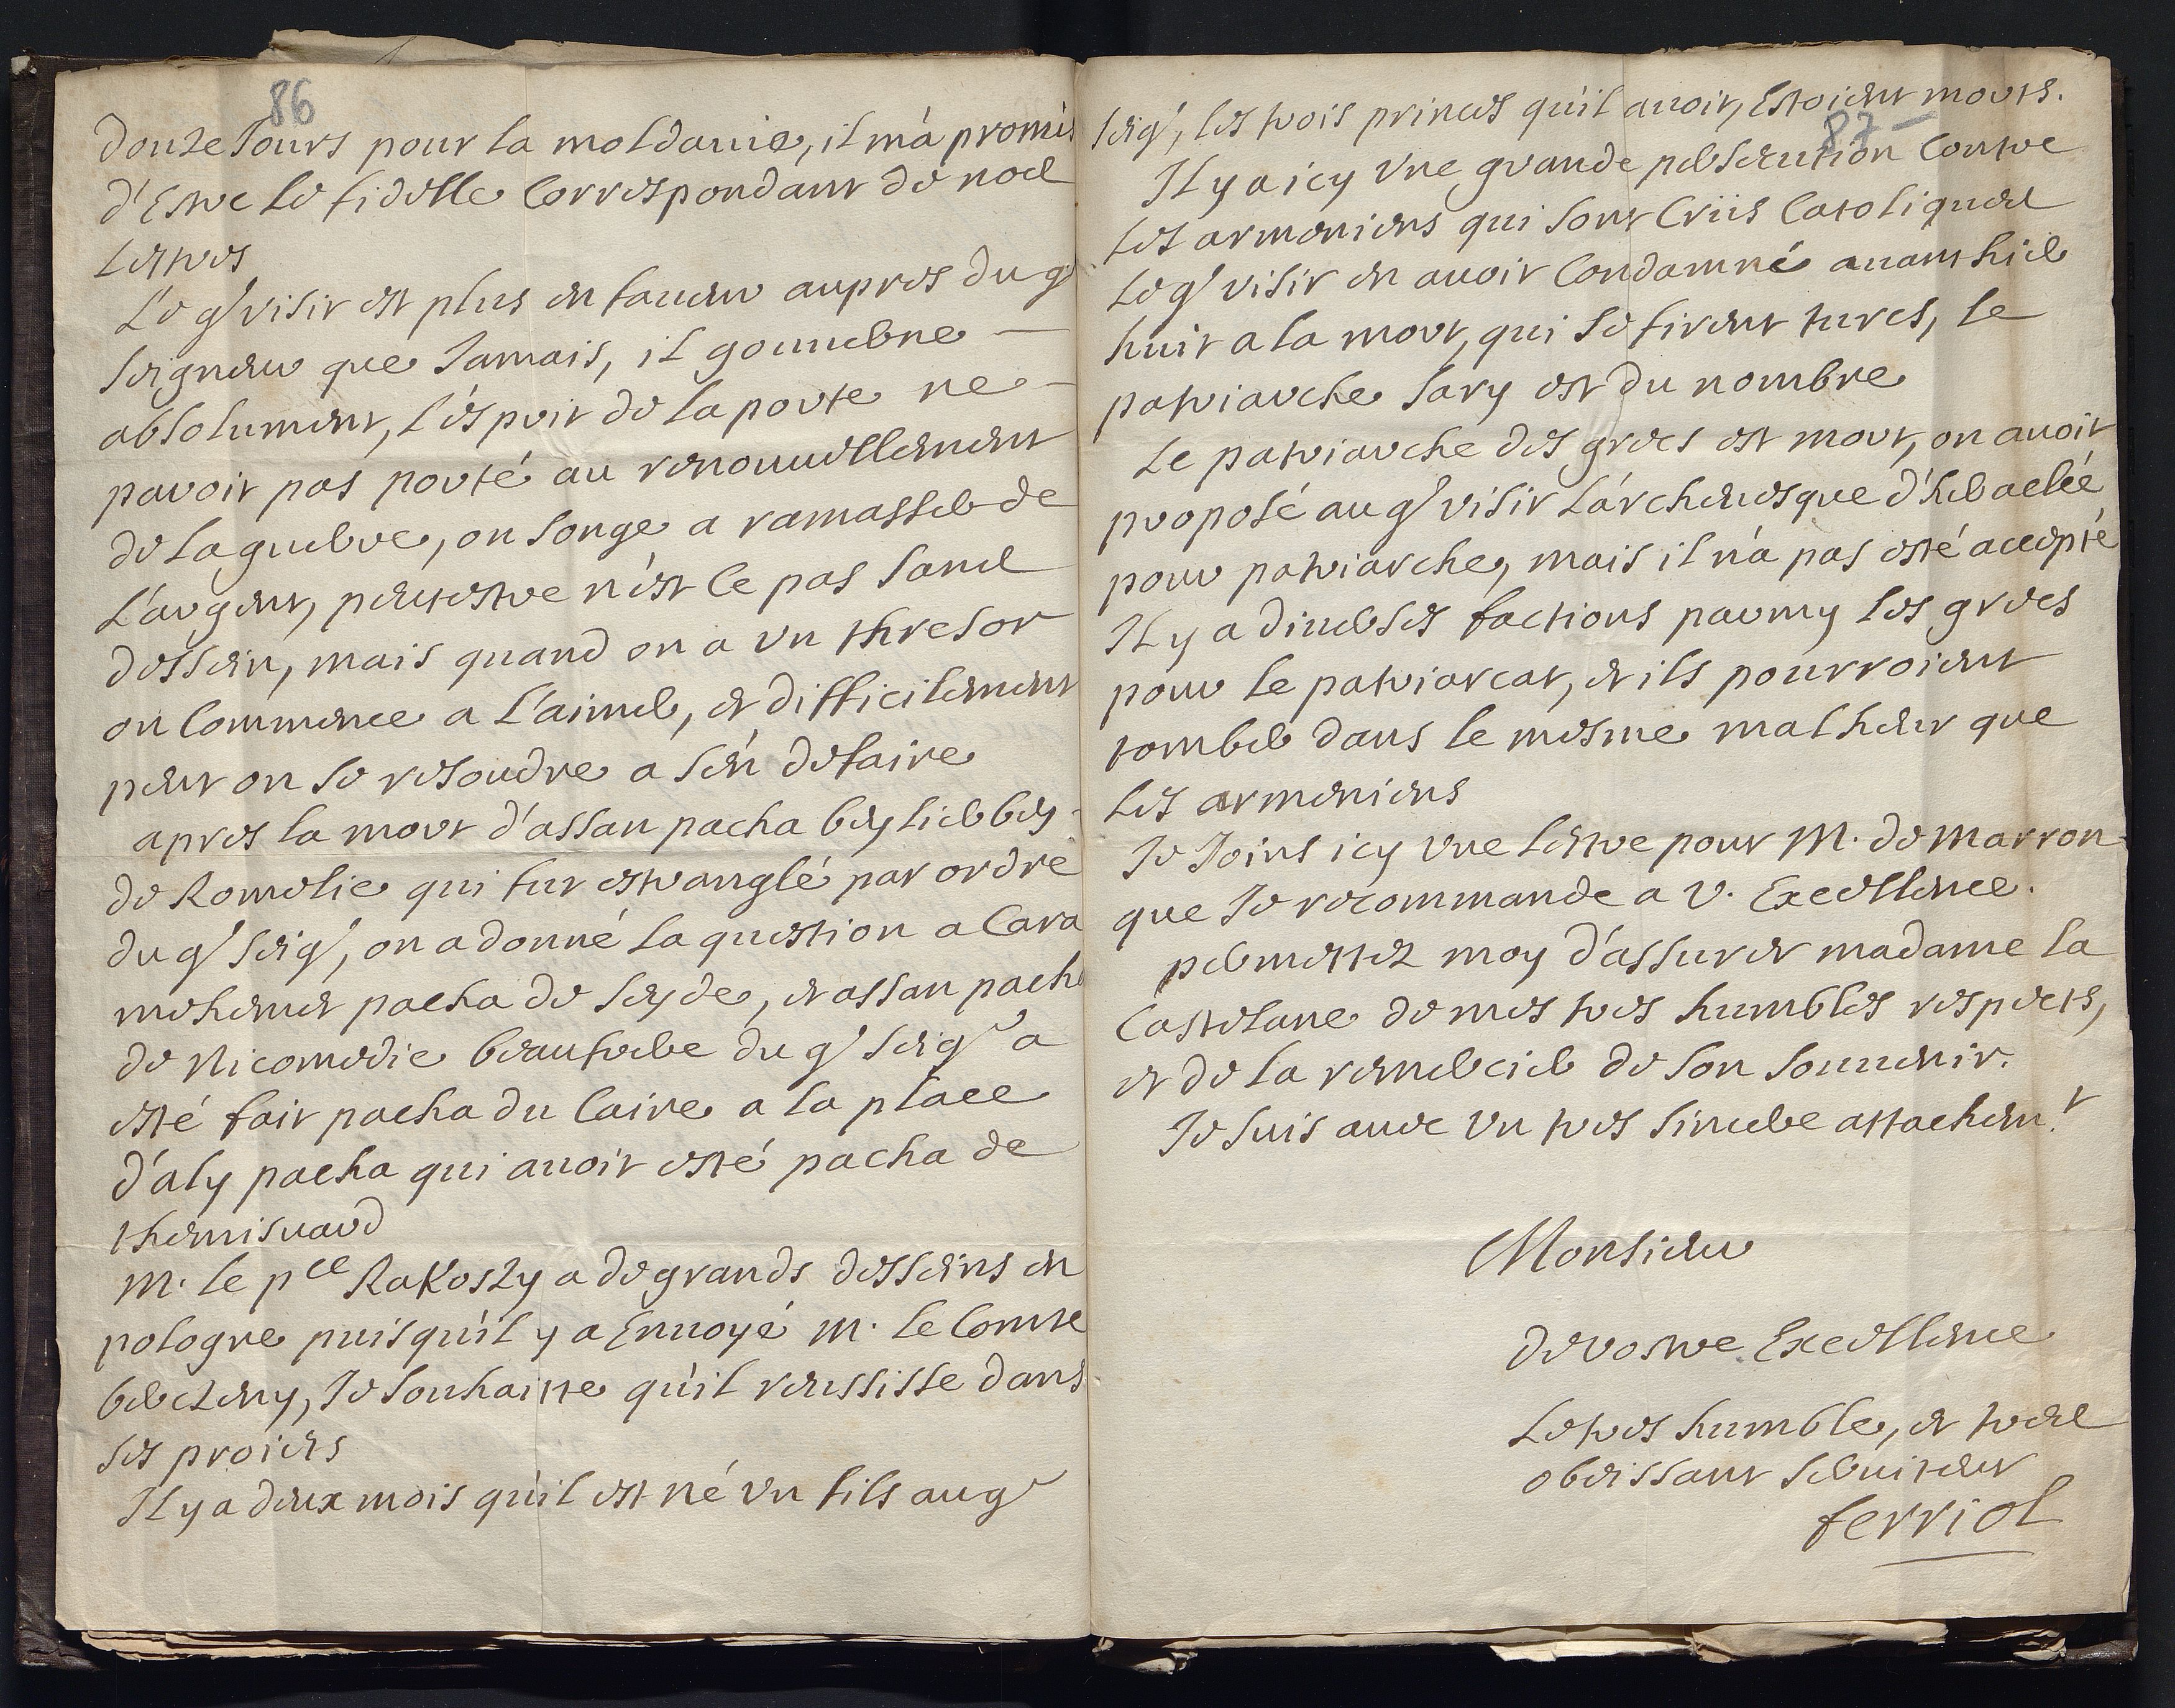 86
douze Jours pour la moldauie, il m'a promis
d'Estre le fidelle Correspondant de nos
Lettres
Le gr visir est plus en faueur aupres du gr
seigneur que Jamais, il gouuerne —
absolument, l'esprit de la porte ne —
paroit pas porté au renouuellement
de la guerre, on songe a ramasser de
L'argent, peutestre n'est ce pas sans
dessein, mais quand on a vn thresor
on Commence a L'aimer, et difficilement
peut on se resoudre a s'en defaire
apres la mort d'assan pacha beylierbey
de Romelie qui fut estranglé par ordre
du gr seigr, on a donné la question a Cara
mehemet pacha de seyde, et assan pacha
de Nicomedie beaufrere du gr seigr a
esté fait pacha du Caire a la place
d'aly pacha qui auoit esté pacha de
themisuard
M. le pce Rakoszy a de grands desseins en
pologne puisqu'il y a Enuoyé M. le Comte
berczeny, Je souhaitte qu'il reussisse dans
ses proiets
Il y a deux mois qu'il est né vn fils au gr
87
seigr, les trois princes qu'il auoit, Estoient morts.
Il y a icy vne grande persecution Contre
les armeniens qui sont Criis Catoliques
Le gr visir en auoit Condamné auant hier
huit a la mort, qui se firent turcs, le
patriarche sary est du nombre
Le patriarche des grecs est mort, on auoit
proposé au gr visir L'archeuesque d'heraclée
pour patriarche, mais il n'a pas esté accepté
Il y a diuerses factions parmy les grecs
pour le patriarcat, et ils pourroient
tomber dans le mesme malheur que
les armeniens
Je Joins icy vne lettre pour M. de Marron
que Je recommande a V. Excellence.
permettez moy d'assurer madame la
Castelane de mes tres humbles respects,
et de la remercier de son souuenir.
Je suis auec vn tres sincere attachemt
Monsieur
de vostre Excellence
Le tres humble, et tres
obeissant seruiteur
ferriol